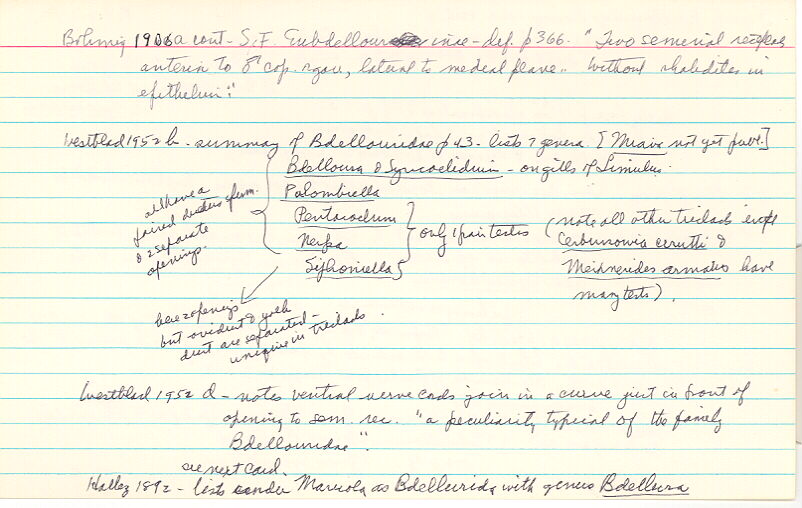 Bohmig 1906a cont - S.F. Eubdellourinae - def. p 366. "Two seminal receptac
anterior to ♂ cop. organ, lateral to medeal plane.. Without rhabdites in
epithelium."
Westblad 1952 b - summary of Bdellouridae p 43 - lists 7 genera. [Miava not yet publ.]
Bdelloura & Syncoelidium - on gills of Limulus.
Palombiella
Pentacoelum
Nerpa
Siphoniella
all have a
paired ductus sperm.
& 2 separate
openings.
only 1 pair testes
(note all other triclads except
Cerbussowia cerrutti &
Meixnerides armatus have
many testes).
here 2 openings
but oviduct & yolk
duct are separated -
unique in triclads.
Westblad 1952 d - notes ventral nerve cords join in a curve just in front of
opening to sem. rec. "a peculiarity typical of the family
Bdellouridae".
see next card.
Hallez 1892 - lists under Maricola as Bdellouridae with genus Bdelloura